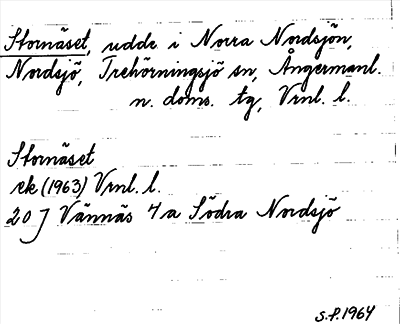 Stornäset, udde i Norra Nordsjön,
Nordsjö, Trehörningsjö sn, Ångermanl.
n. doms. tg, Vrnl. l.
Stornäset
ek (1963) Vrnl. l.
20 J Vännäs 7a Södra Nordsjö
S.F. 1964